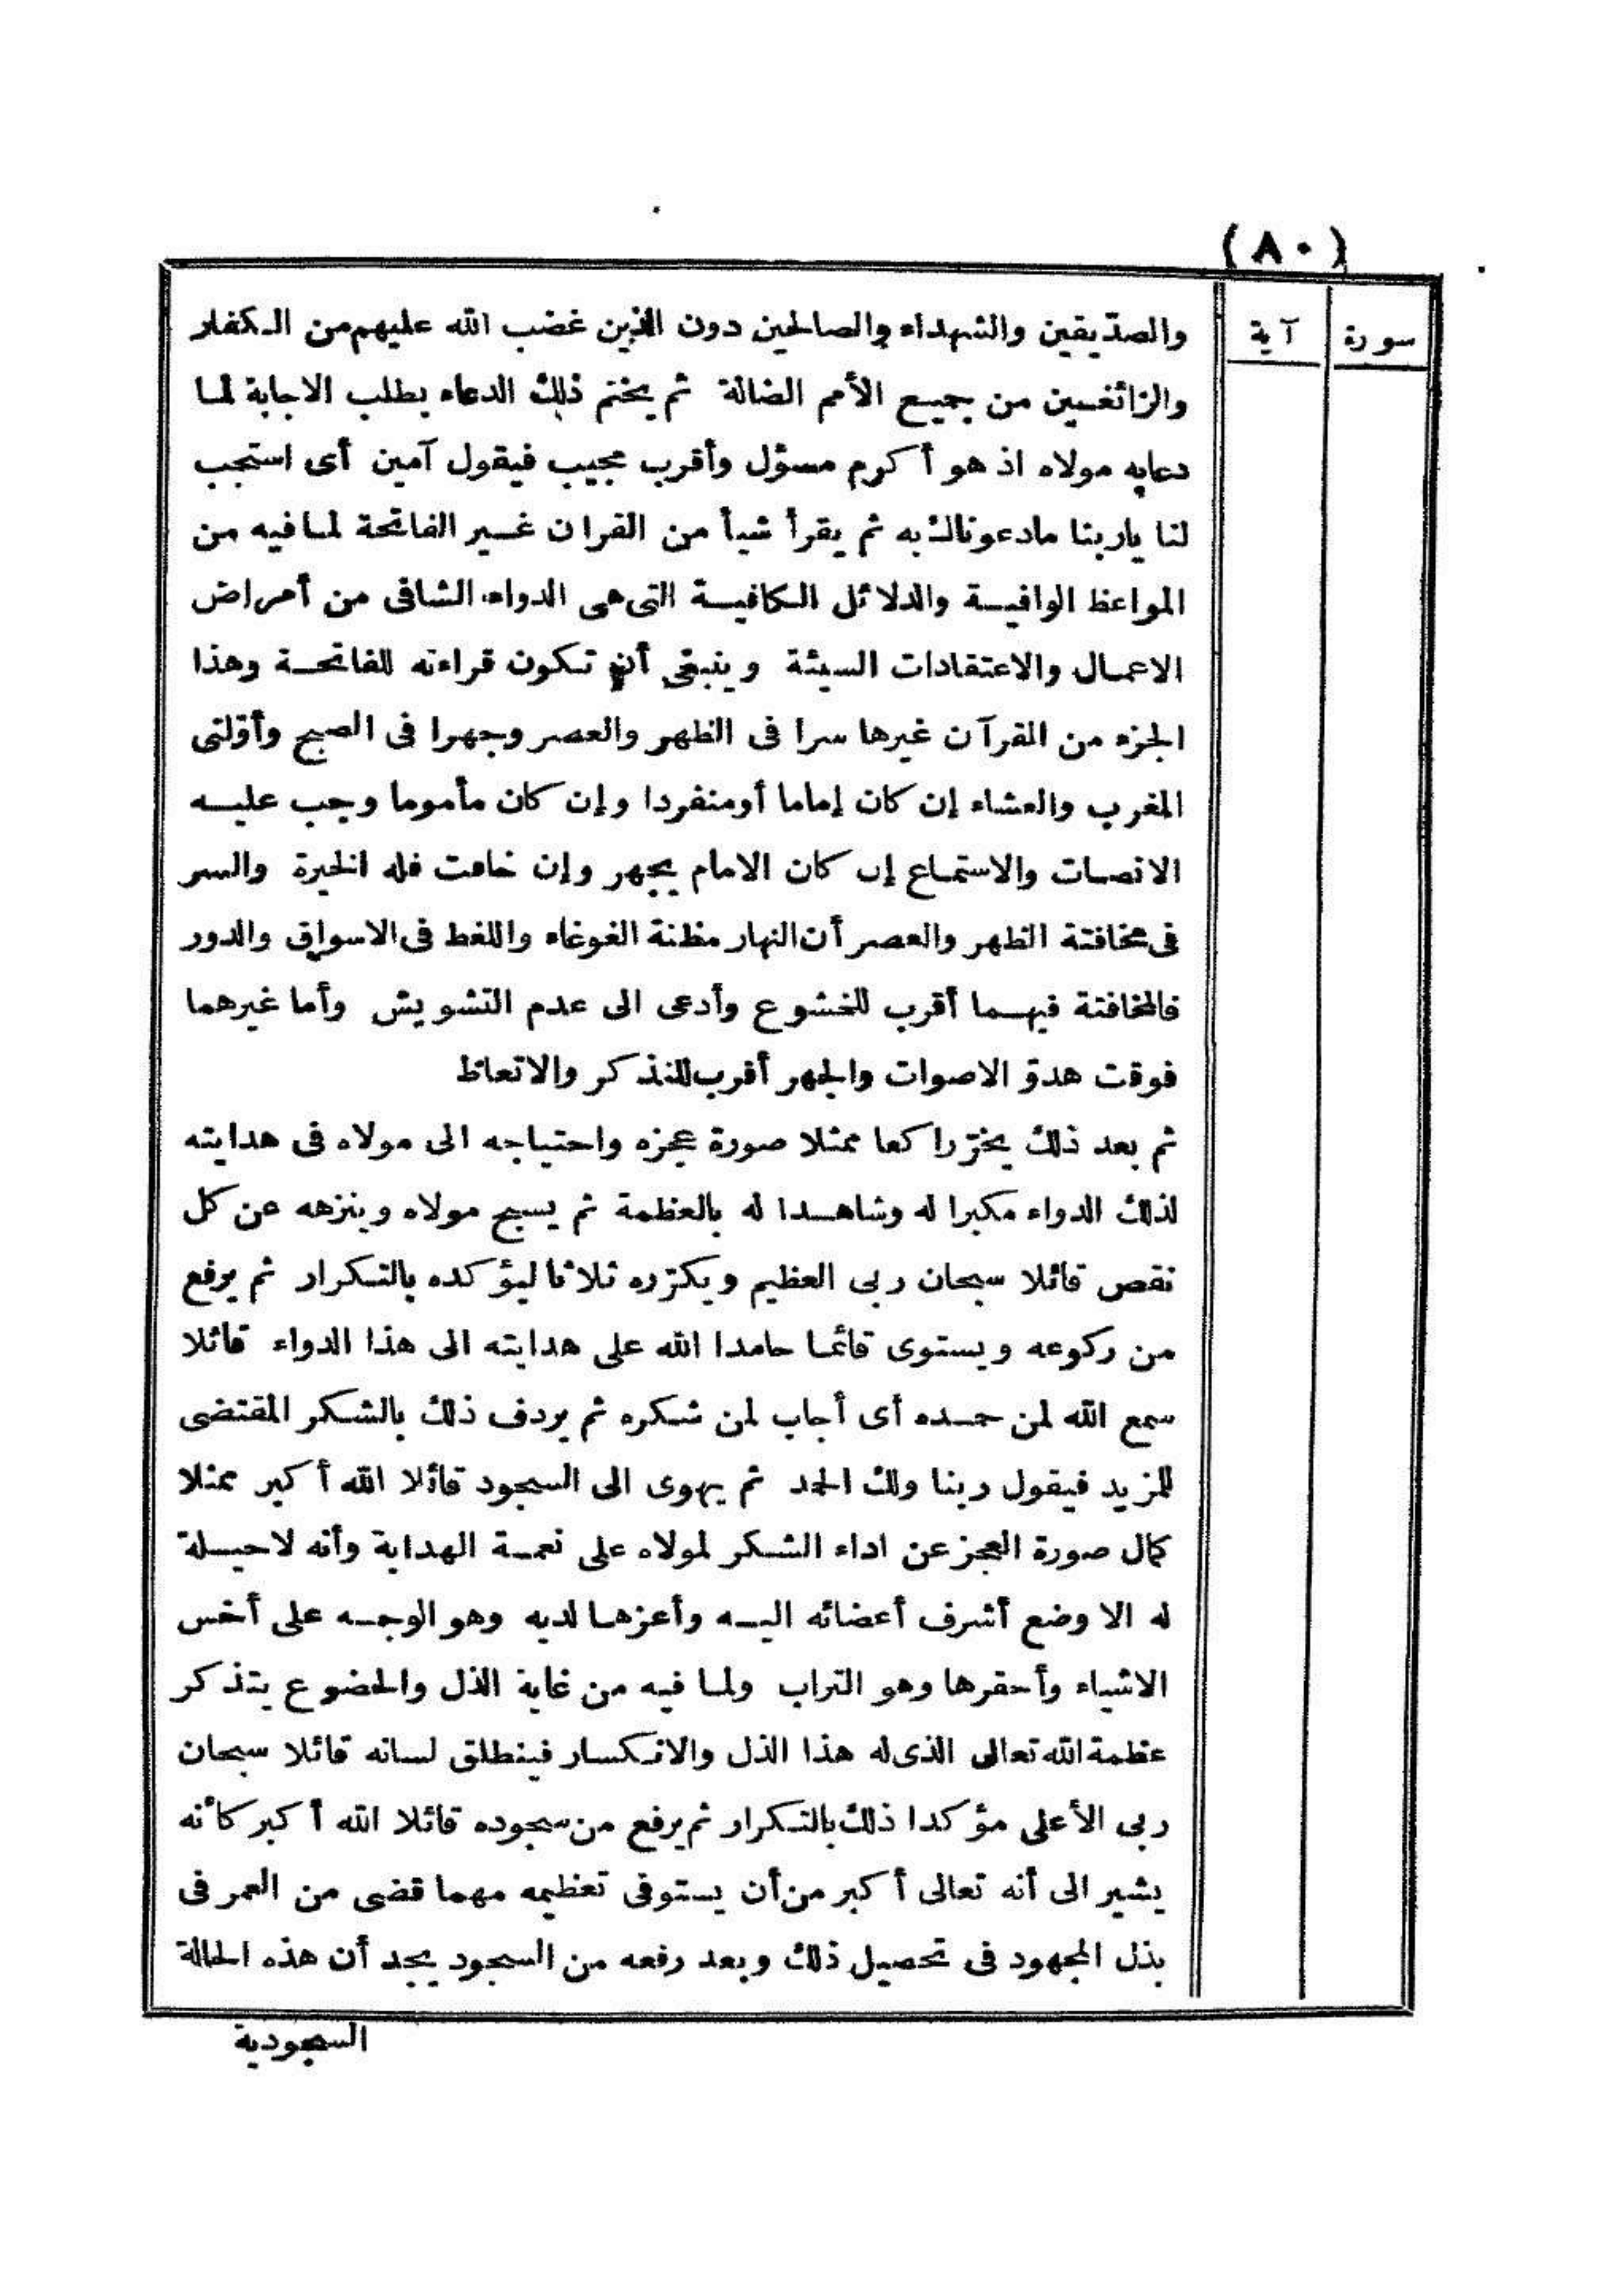 (٨٠)
سورة آية
والصدّيقين والشهداء والصالحين دون الذين غضب الله عليهم من الكفار
والزائغين من جميع الأمم الضالة ثم يختم ذلك الدعاء بطلب الاجابة لما
دعابه مولاه اذ هو أكرم مسؤل وأقرب مجيب فيقول آمين أى استجب
لنا ياربنا مادعوناك به ثم يقرأ شيأ من القران غير الفاتحة لما فيه من
المواعظ الوافية والدلائل الكافية التى هى الدواء الشافى من أمراض
الاعمال والاعتقادات السيئة وينبغى أن تكون قراءته للفاتحة وهذا
الجزء من القرآن غيرها سرا فى الظهر والعصر وجهرا فى الصبح وأوّلتى
المغرب والعشاء إن كان إماما أومنفردا وإن كان مأموما وجب عليه
الانصات والاستماع إن كان الامام يجهر وإن خافت فله الخيرة والسر
فى مخافتة الظهر والعصر أن النهار مظنة الغوغاء واللغط فى الاسواق والدور
فالمخافتة فيهما أقرب للخشوع وأدعى الى عدم التشويش وأما غيرهما
فوقت هدوّ الاصوات والجهر أقرب للتذكر والاتعاظ
ثم بعد ذلك يخرّ راكعا ممثلا صورة عجزه واحتياجه الى مولاه فى هدايته
لذلك الدواء مكبرا له وشاهدا له بالعظمة ثم يسبح مولاه وينزهه عن كل
نقص قائلا سبحان ربى العظيم ويكرّره ثلاثا ليؤكده بالتكرار ثم يرفع
من ركوعه ويستوى قائما حامدا الله على هدايته الى هذا الدواء قائلا
سمع الله لمن حمده أى أجاب لمن شكره ثم يردف ذلك بالشكر المقتضى
للمزيد فيقول ربنا ولك الحمد ثم يهوى الى السجود قائلا الله أكبر ممثلا
كمال صورة العجز عن اداء الشكر لمولاه على نعمة الهداية وأنه لاحيلة
له الا وضع أشرف أعضائه اليه وأعزها لديه وهو الوجه على أخس
الاشياء وأحقرها وهو التراب ولما فيه من غاية الذل والخضوع يتذكر
عظمة الله تعالى الذى له هذا الذل والانكسار فينطلق لسانه قائلا سبحان
ربى الأعلى مؤكدا ذلك بالتكرار ثم يرفع من سجوده قائلا الله أكبر كأنه
يشير الى أنه تعالى أكبر من أن يستوفى تعظيمه مهما قضى من العمر فى
بذل المجهود فى تحصيل ذلك وبعد رفعه من السجود يجد أن هذه الحالة
السجودية